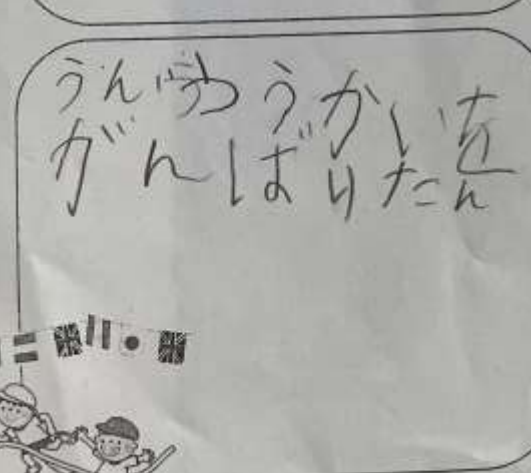 うんうかいを
がんばりた